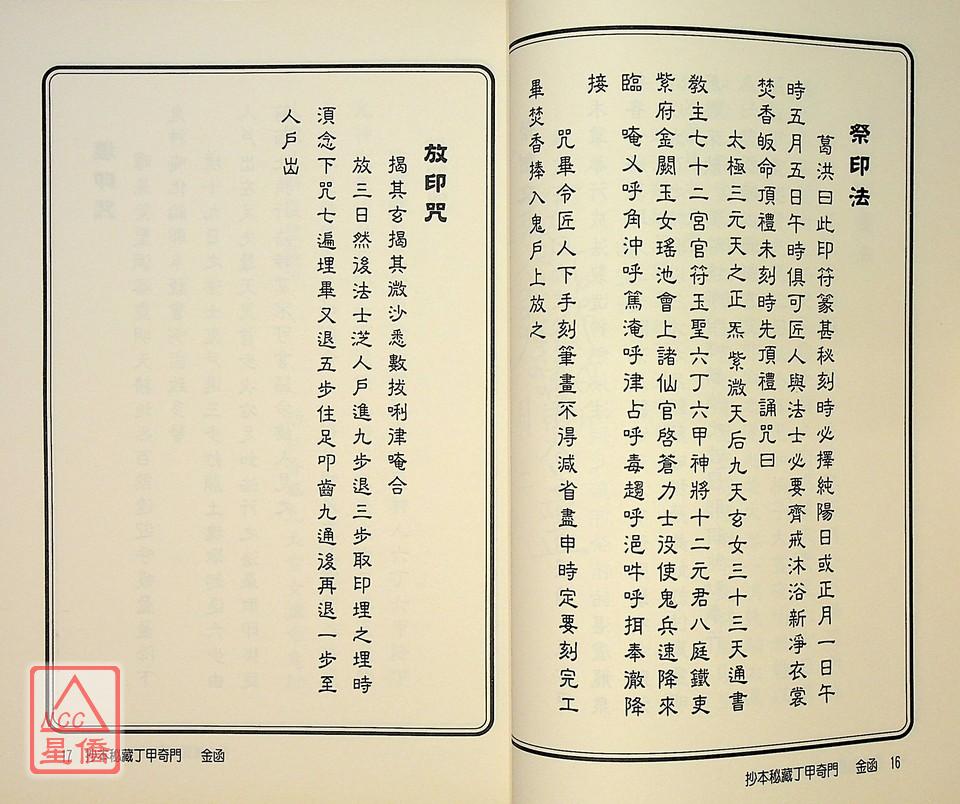 祭印法
葛洪曰此印符篆甚秘刻時必擇純陽日或正月一日午
時五月五日午時俱可匠人與法士必要齊戒沐浴新淨衣裳
焚香皈命頂禮未刻時先頂禮誦咒曰
太極三元天之正炁紫微天后九天玄女三十三天通書
教主七十二宮官符玉聖六丁六甲神將十二元君八庭鐵吏
紫府金闕玉女瑤池會上諸仙官啓蒼力士役使鬼兵速降來
臨唵乂呼角沖呼篤淹呼律占呼毒趨呼浥吽呼挕奉澈降
接
咒畢令匠人下手刻筆畫不得減省盡申時定要刻完工
畢焚香捧入鬼戶上放之
抄本秘藏丁甲奇門 金函 16
放印咒
揭其玄揭其微沙悉數拔唎律唵合
放三日然後法士從人戶進九步退三步取印埋之埋時
須念下咒七遍埋畢又退五步住足叩齒九通後再退一步至
人戶出
17 抄本秘藏丁甲奇門 金函
NCC
星僑